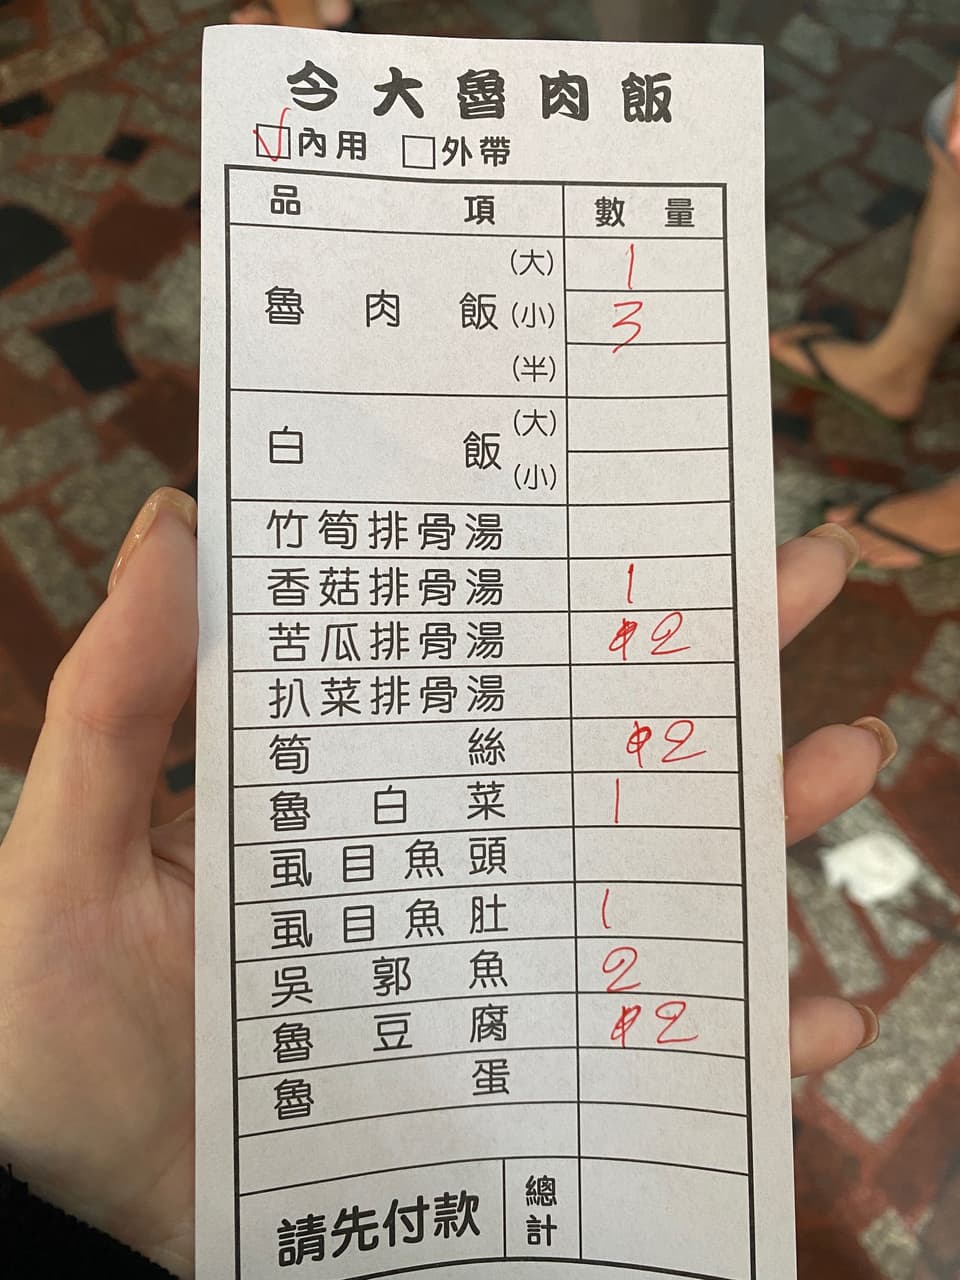 今大魯肉飯
☑內用 ☐外帶
品項 數量
魯肉飯 (大) 1
(小) 3
(半)
白飯 (大)
(小)
竹筍排骨湯
香菇排骨湯 1
苦瓜排骨湯 2
扒菜排骨湯
筍絲 2
魯白菜 1
虱目魚頭
虱目魚肚 1
吳郭魚 2
魯豆腐 2
魯蛋
請先付款 總計